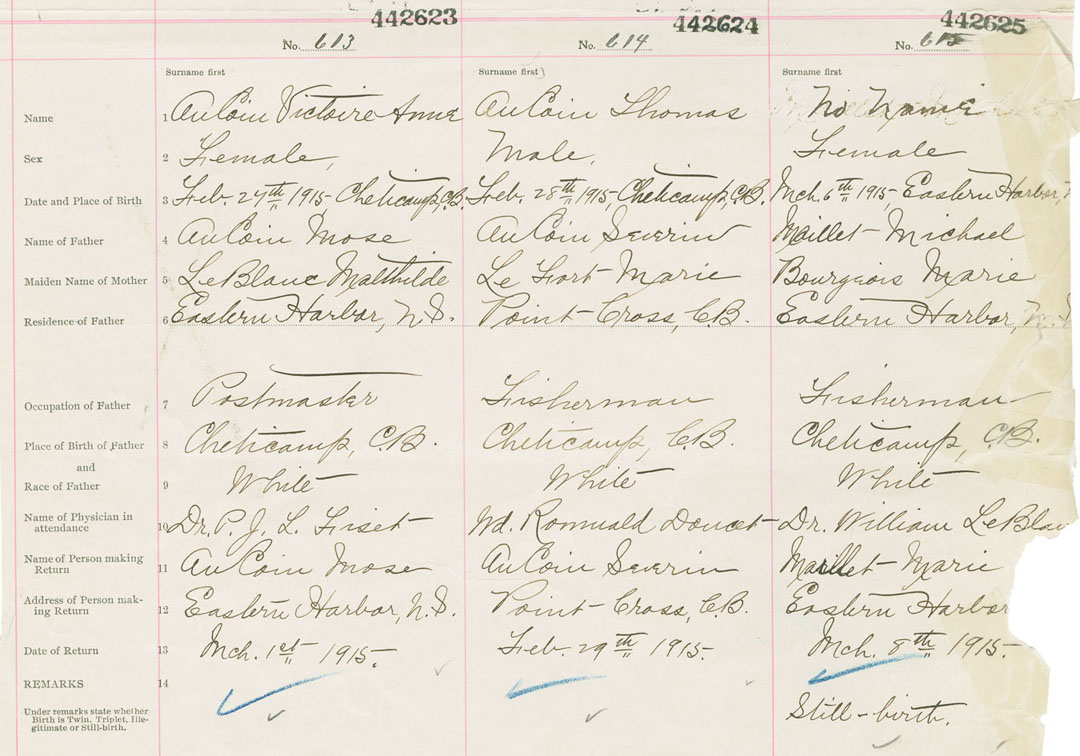 442623 442624 442625
No. 613 No. 614 No. 615
Surname first Surname first Surname first
Name 1 AuCoin Victoire Anne AuCoin Thomas No Name
Sex 2 Female, Male, Female
Date and Place of Birth 3 Feb. 27th 1915 Cheticamp, C.B. Feb. 28th 1915, Cheticamp, C.B. Mch. 6th 1915, Eastern Harbor,
Name of Father 4 AuCoin Mose AuCoin Severin Maillet Michael
Maiden Name of Mother 5 LeBlanc Matthilde Le Fort Marie Bourgeois Marie
Residence of Father 6 Eastern Harbor, N.S. Point-Cross, C.B. Eastern Harbor, N.S.
Occupation of Father 7 Postmaster Fisherman Fisherman
Place of Birth of Father 8 Cheticamp, C.B. Cheticamp, C.B. Cheticamp, C.B.
and
Race of Father 9 White White White
Name of Physician in
attendance 10 Dr. P. J. L. Fiset Wd. Romuald Doucet Dr. William LeBlan
Name of Person making
Return 11 AuCoin Mose AuCoin Severin Maillet Marie
Address of Person mak-
ing Return 12 Eastern Harbor, N.S. Point-Cross, C.B. Eastern Harbor
Date of Return 13 Mch. 1st 1915. Feb. 29th 1915. Mch. 8th 1915.
REMARKS 14
Under remarks state whether
Birth is Twin. Triplet, Ille-
gitimate or Still-birth.
Still-birth.